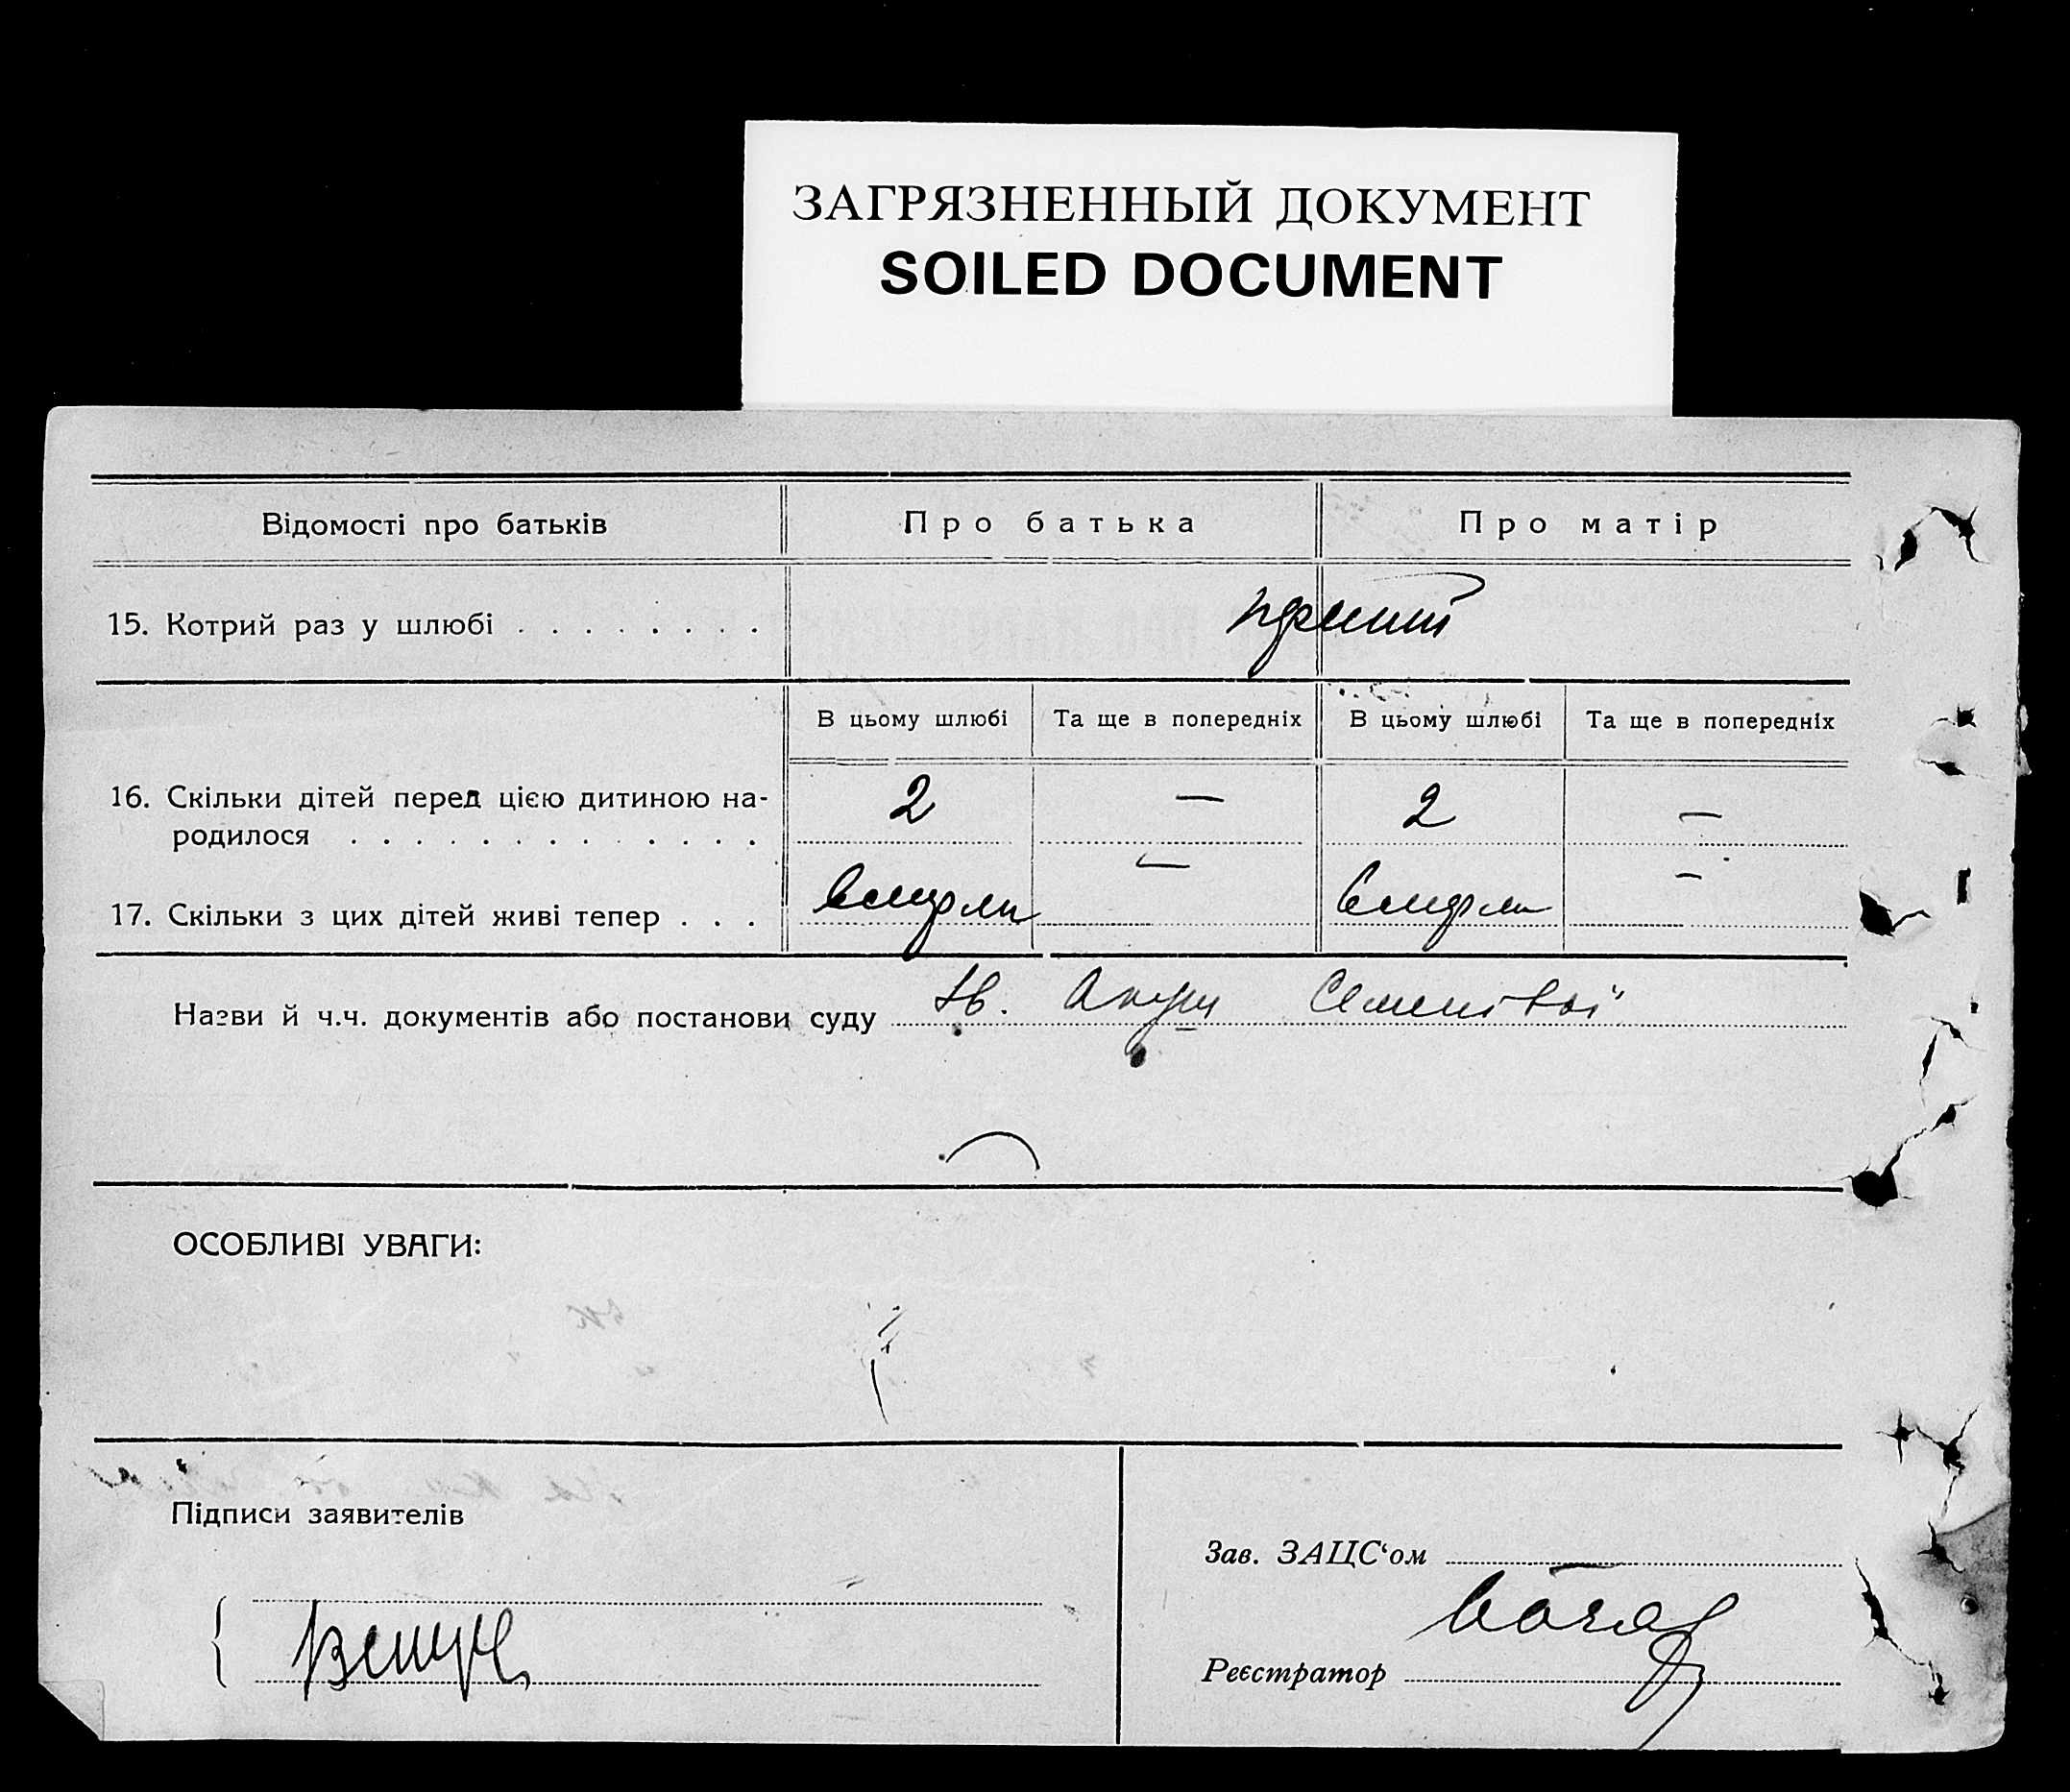 ЗАГРЯЗНЕННЫЙ ДОКУМЕНТ
SOILED DOCUMENT
Відомості про батьків Про батька Про матір
15. Котрий раз у шлюбі . . . . . . . .
В цьому шлюбі Та ще в попередніх В цьому шлюбі Та ще в попередніх
16. Скільки дітей перед цією дитиною на-
родилося . . . . . . . . . . . . . 2 — 2 —
17. Скільки з цих дітей живі тепер . . . вмерли — вмерли —
Назви й ч.ч. документів або постанови суду
ОСОБЛИВІ УВАГИ:
Підписи заявителів
Зав. ЗАЦС'ом
Реєстратор